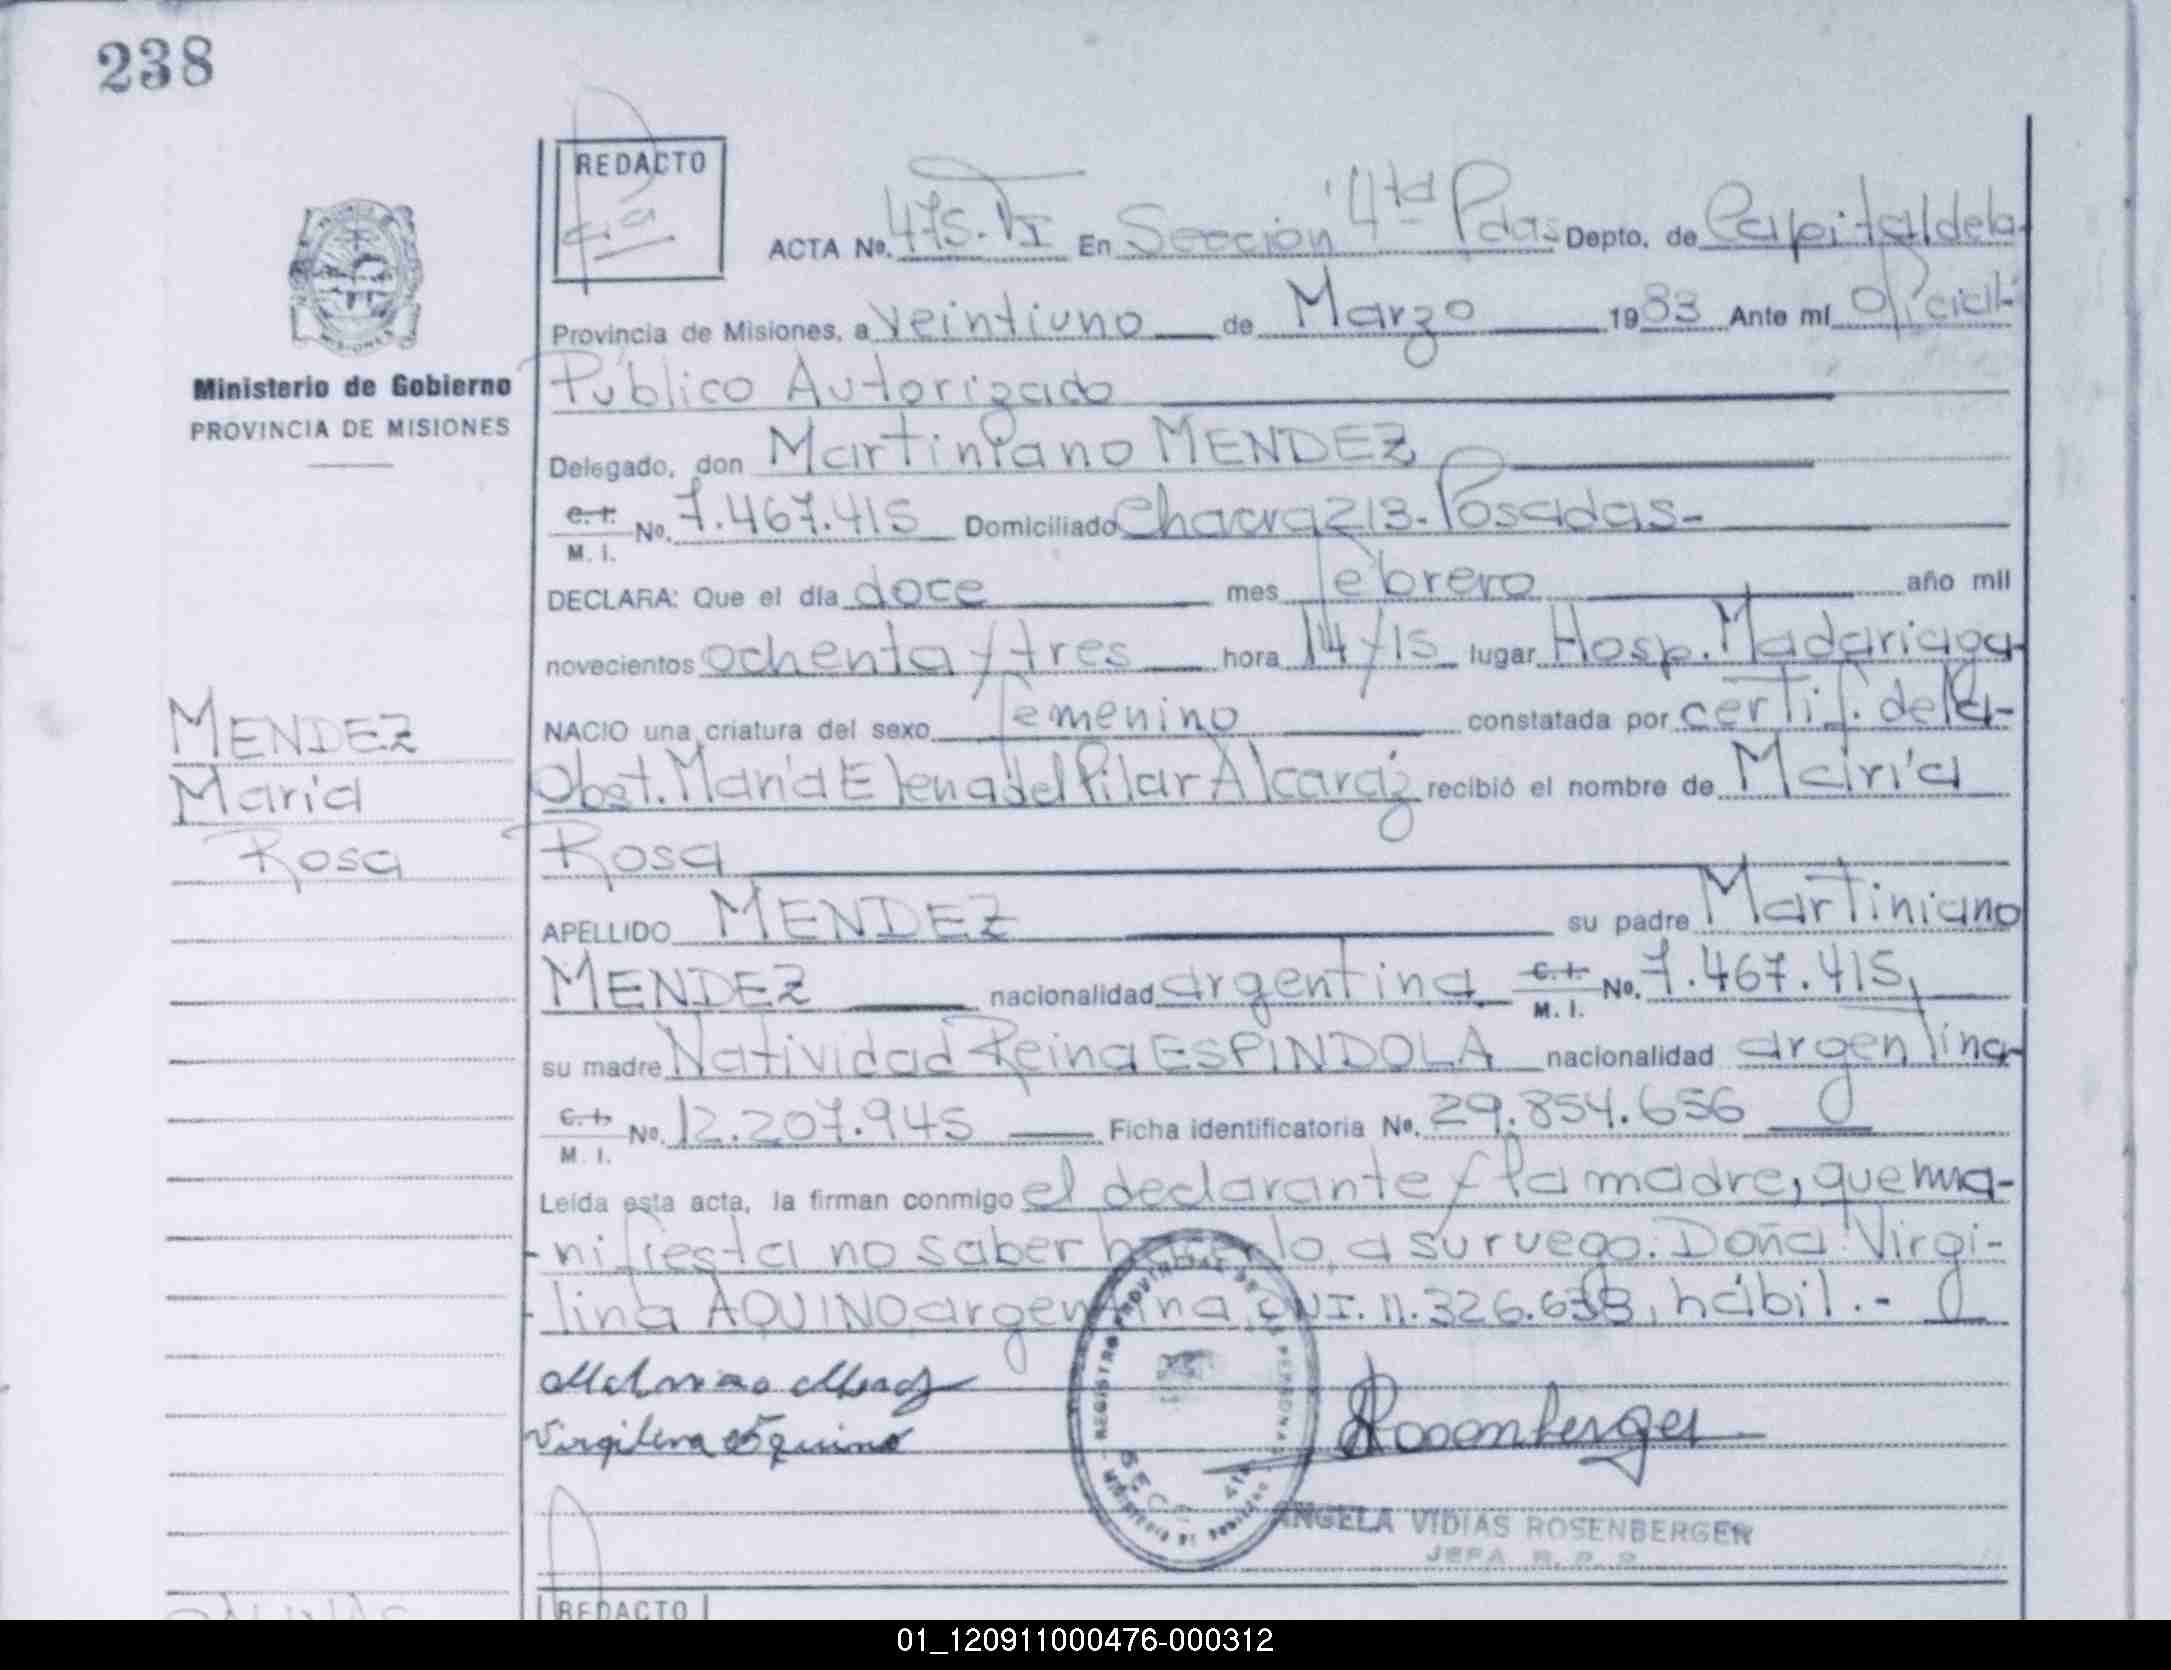 238
REDACTO
4ta
ACTA No. 475. VI En Sección 4ta Pdas- Depto. de Capital de la-
Provincia de Misiones, a veintiuno de Marzo 1983 Ante mí Oficial
Público Autorizado
Ministerio de Gobierno
PROVINCIA DE MISIONES
Delegado, don Martiniano MENDEZ
C. I. M. I. No. 7.467.415 Domiciliado Chacra 213. Posadas-
DECLARA: Que el día doce mes febrero año mil
novecientos ochenta y tres hora 14 y 15 lugar Hosp. Madariaga-
NACIO una criatura del sexo femenino constatada por certif. de la-
MENDEZ
María
Rosa
Obst. María Elena del Pilar Alcaráz recibió el nombre de María
Rosa
APELLIDO MENDEZ su padre Martiniano
MENDEZ nacionalidad argentina C. I. M. I. No. 7.467.415,
su madre Natividad Reina ESPINDOLA nacionalidad argentina-
C. I. M. I. No. 12.207.945 Ficha identificatoria No. 29.854.656
Leída esta acta, la firman conmigo el declarante y la madre, que ma-
nifiesta no saber hacerlo, a su ruego. Doña Virgi-
lina AQUINO argentina, DNI. 11.326.638, hábil.-
Virgilina Aquino
Rosenberger
REGISTRO PROVINCIAL DE LAS PERSONAS
ANGELA VIDIAS ROSENBERGER
JEFA R. P. P.
REDACTO
01_120911000476-000312